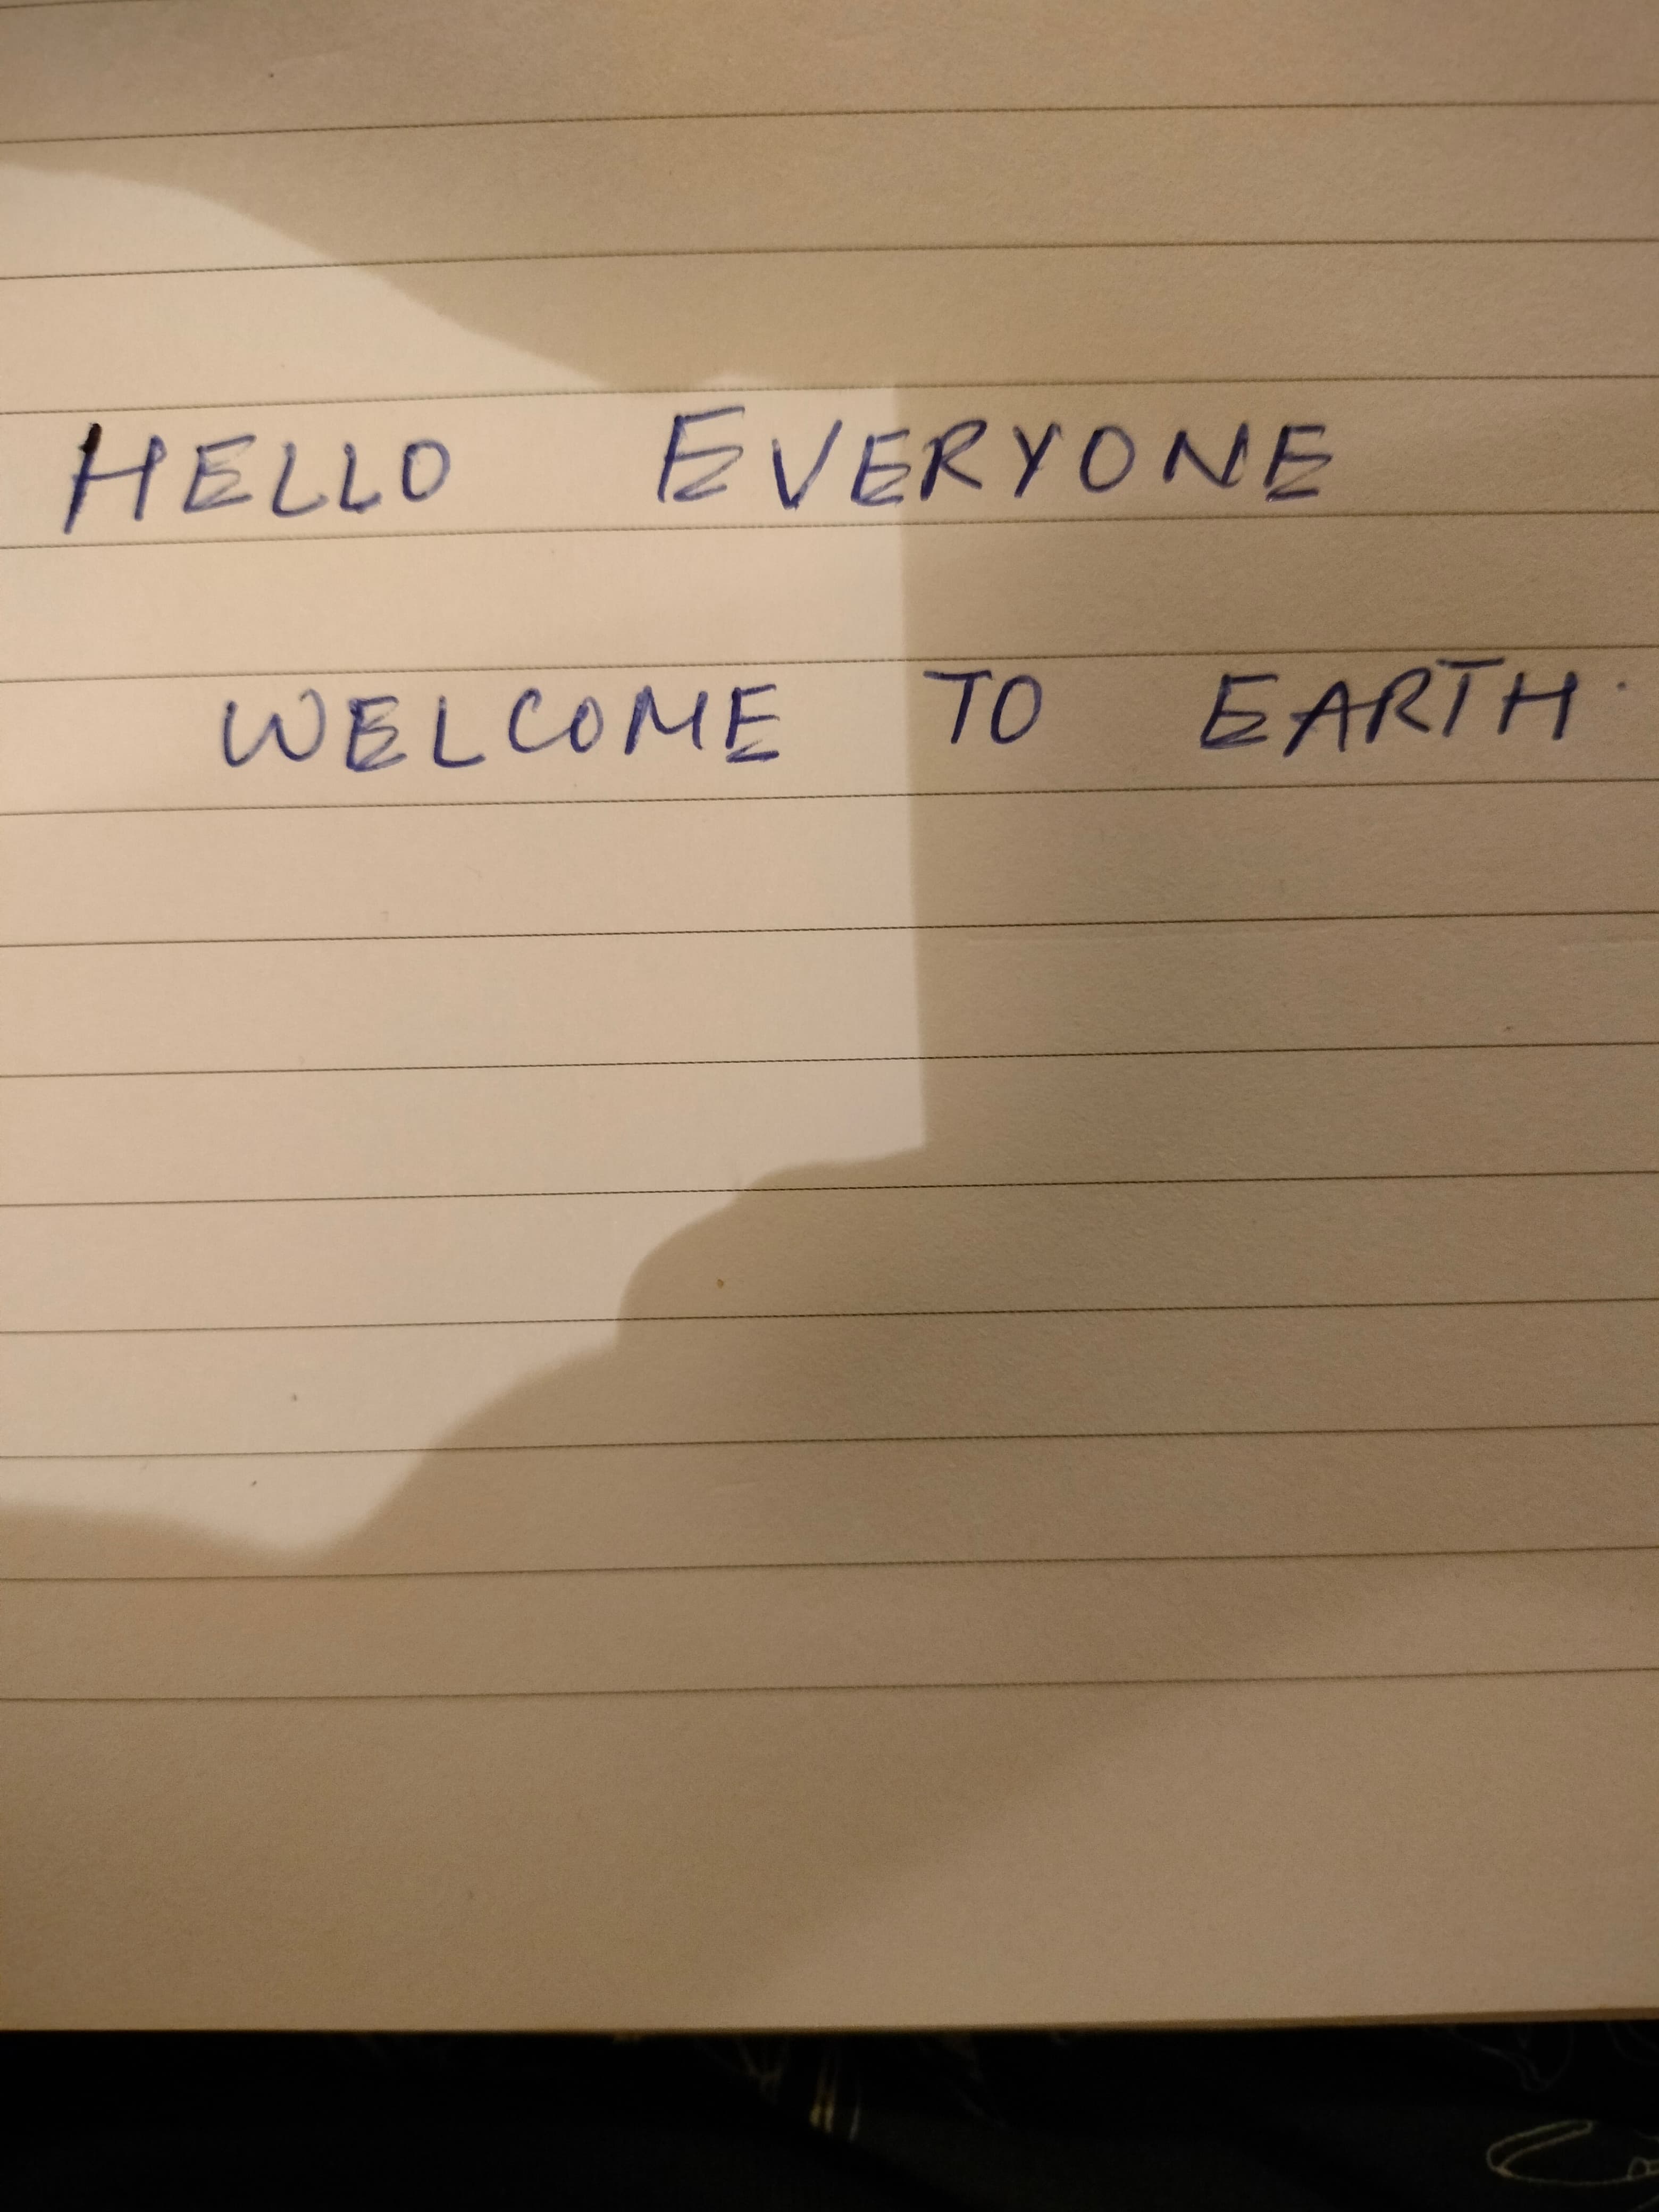 HELLO EVERYONE
WELCOME TO EARTH.